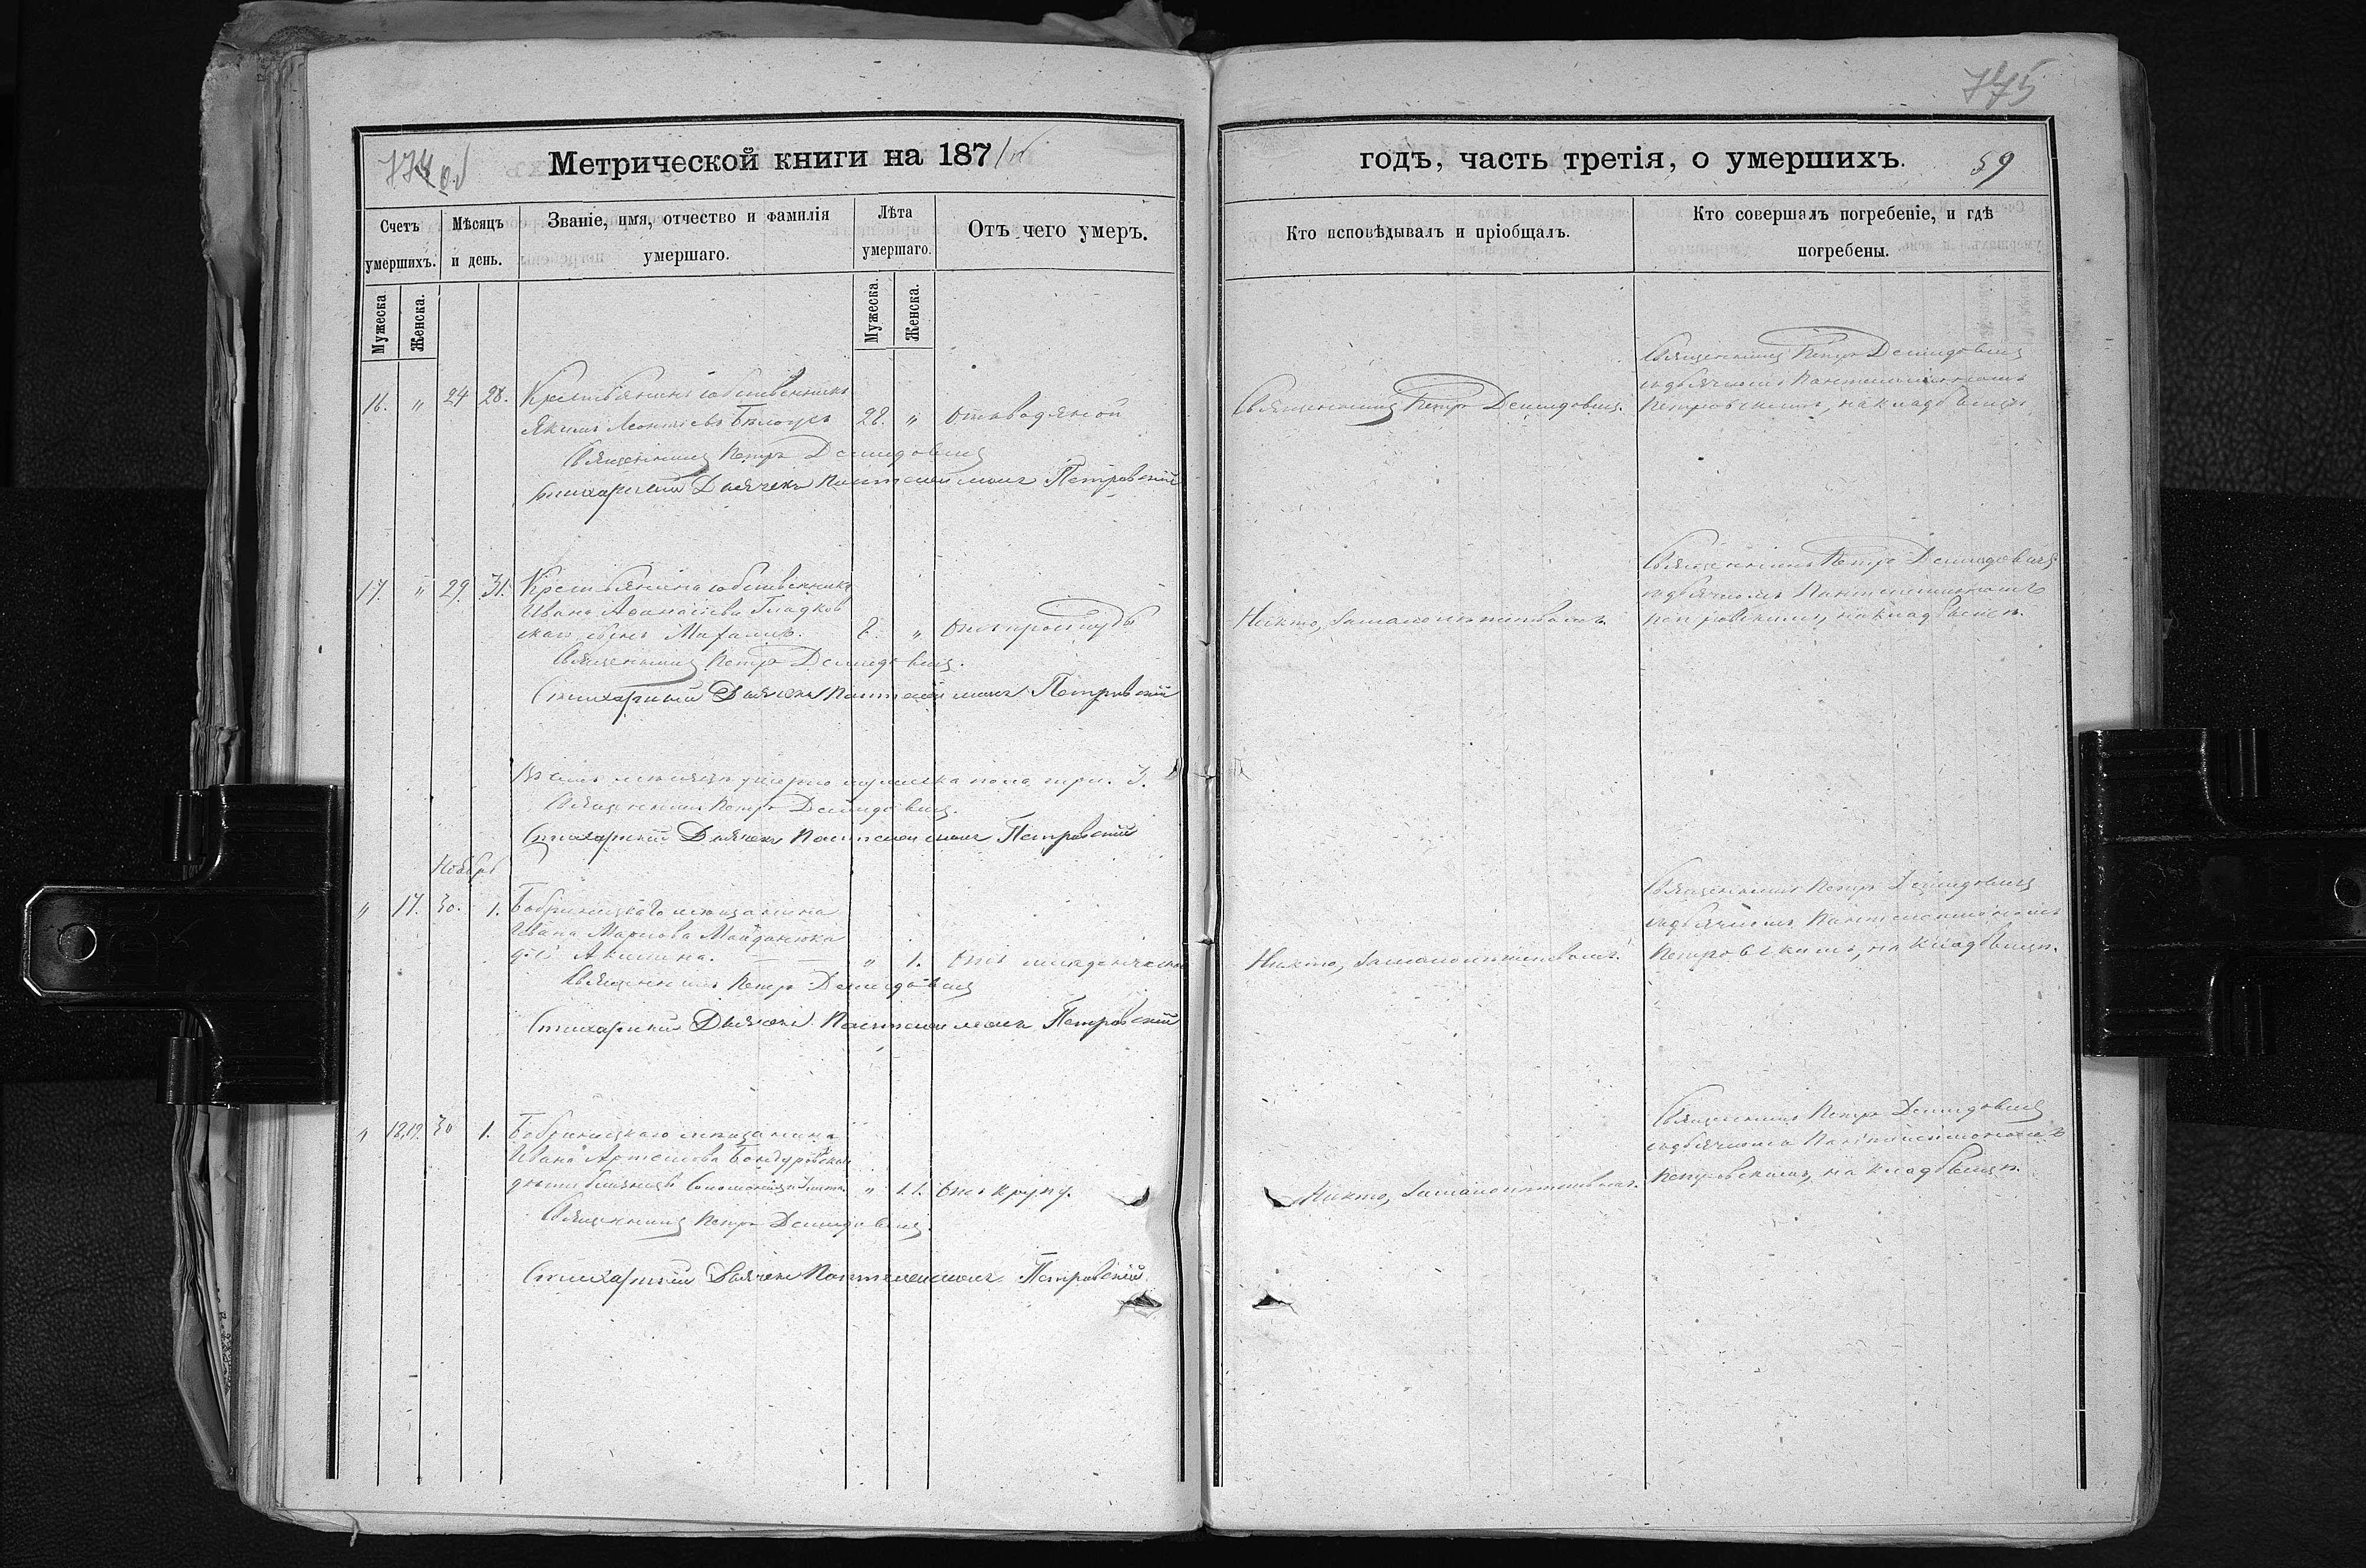 775
774 об
Метрической книги на 1871й
годъ, часть третія, о умершихъ.
59
Счетъ умершихъ.
Мѣсяцъ и день.
Званіе, имя, отчество и фамилія умершаго.
Лѣта умершаго.
Отъ чего умеръ.
Кто исповѣдывалъ и пріобщалъ.
Кто совершалъ погребеніе, и гдѣ погребены.
Мужеска
Женска.
Мужеска.
Женска.
16. " 24 28. Крестьянинъ собственникъ
Якимъ Леонтіевъ 28. " Отъ водяной
Священникъ Петръ Демидовичъ.
Священникъ Петръ Демидовичъ
съ дьячкомъ Пантелеимономъ
Петровскимъ, на кладбищѣ
Священникъ Петръ Демидовичъ
Стихарный Дьячекъ Пантелеимонъ Петровскій
17. " 29. 31. Крестьянина собственника
Ивана Аѳанасіева Гладков
скаго сынъ Михаилъ. " Отъ простуды
Никто, за малолѣтствомъ.
Священникъ Петръ Демидовичъ
съ дьячкомъ Пантелеимономъ
Петровскимъ, на кладбищѣ.
Священникъ Петръ Демидовичъ.
Стихарный Дьячекъ Пантелеимонъ Петровскій
Въ семъ мѣсяцѣ умерло мужеска пола три. 3.
Священникъ Петръ Демидовичъ.
Стихарный Дьячекъ Пантелеимонъ Петровскій
Ноябрь
" 17. 30. 1. Бобринецкаго мѣщанина
Ивана Маркова Майданюка
дочь Акилина. " 1. Отъ младенческой
Никто, за малолѣтствомъ.
Священникъ Петръ Демидовичъ
съ дьячкомъ Пантелеимономъ
Петровскимъ, на кладбищѣ.
Священникъ Петръ Демидовичъ
Стихарный Дьячекъ Пантелеимонъ Петровскій
" 18,19. 30 1. Бобринецкаго мѣщанина
Ивана Артемова
дѣти близнецы " 1.1. Отъ крупу.
Никто, за малолѣтствомъ.
Священникъ Петръ Демидовичъ
съ дьячкомъ Пантелеимономъ
Петровскимъ, на кладбищѣ.
Священникъ Петръ Демидовичъ.
Стихарный Дьячекъ Пантелеимонъ Петровскій